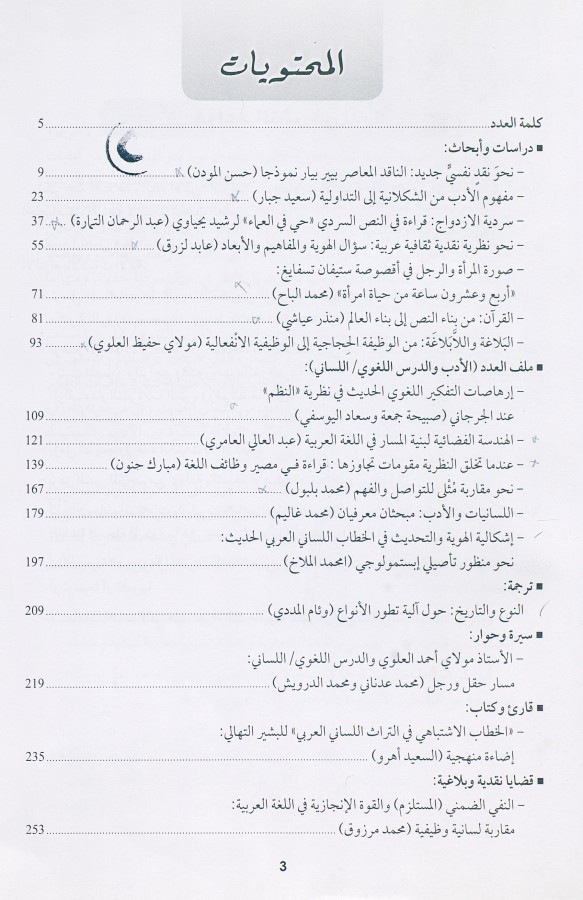 المحتويات
كلمة العدد ........ 5
■ دراسات وأبحاث:
– نحوَ نقدٍ نفسيٍّ جديد: الناقد المعاصر بيير بيار نموذجا (حسن المودن) ........ 9
– مفهوم الأدب من الشكلانية إلى التداولية (سعيد جبار) ........ 23
– سردية الازدواج: قراءة في النص السردي «حي في العماء» لرشيد يحياوي (عبد الرحمان التمارة) ..... 37
– نحو نظرية نقدية ثقافية عربية: سؤال الهوية والمفاهيم والأبعاد (عابد لزرق) ........ 55
– صورة المرأة والرجل في أقصوصة ستيفان تسفايغ:
«أربع وعشرون ساعة من حياة امرأة» (محمد الباح) ........ 71
– القرآن: من بناء النص إلى بناء العالم (منذر عياشي) ........ 81
– البَلاغة واللاَّبَلاغَة: من الوظيفة الحِجاجية إلى الوظيفية الانْفعالية (مولاي حفيظ العلوي) ........ 93
■ ملف العدد (الأدب والدرس اللغوي/ اللساني):
– إرهاصات التفكير اللغوي الحديث في نظرية «النظم»
عند الجرجاني (صبيحة جمعة وسعاد اليوسفي) ........ 109
– الهندسة الفضائية لبنية المسار في اللغة العربية (عبد العالي العامري) ........ 121
– عندما تخلق النظرية مقومات تجاوزها : قراءة في مصير وظائف اللغة (مبارك حنون) ........ 139
– نحو مقاربة مُثْلى للتواصل والفهم (محمد بلبول) ........ 167
– اللسانيات والأدب: مبحثان معرفيان (محمد غاليم) ........ 179
– إشكالية الهوية والتحديث في الخطاب اللساني العربي الحديث:
نحو منظور تأصيلي إبستمولوجي (امحمد الملاخ) ........ 197
■ ترجمة:
النوع والتاريخ: حول آلية تطور الأنواع (وئام المددي) ........ 209
■ سيرة وحوار:
– الأستاذ مولاي أحمد العلوي والدرس اللغوي/ اللساني:
مسار حقل ورجل (محمد عدناني ومحمد الدرويش) ........ 219
■ قارئ وكتاب:
– «الخطاب الاشتباهي في التراث اللساني العربي» للبشير التهالي:
إضاءة منهجية (السعيد أهرو) ........ 235
■ قضايا نقدية وبلاغية:
– النفي الضمني (المستلزم) والقوة الإنجازية في اللغة العربية:
مقاربة لسانية وظيفية (محمد مرزوق) ........ 253
3